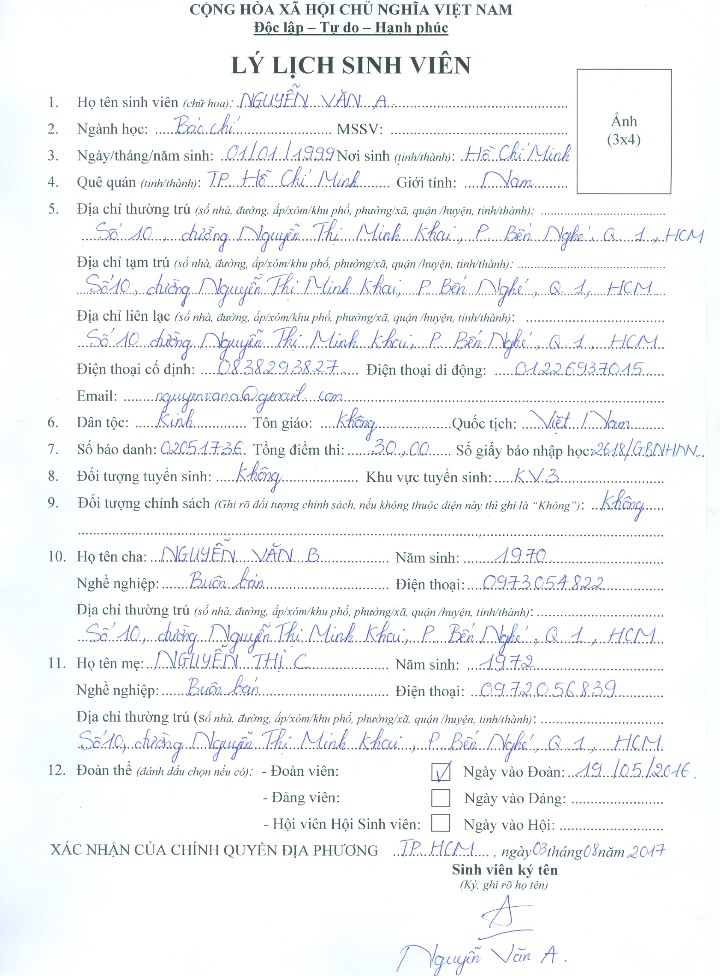 CỘNG HÒA XÃ HỘI CHỦ NGHĨA VIỆT NAM
Độc lập – Tự do – Hạnh phúc
LÝ LỊCH SINH VIÊN
Ảnh
(3x4)
1. Họ tên sinh viên (chữ hoa): NGUYỄN VĂN A
2. Ngành học: Báo chí MSSV:
3. Ngày/tháng/năm sinh: 01/01/1999 Nơi sinh (tỉnh/thành): Hồ Chí Minh
4. Quê quán (tỉnh/thành): TP. Hồ Chí Minh Giới tính: Nam
5. Địa chỉ thường trú (số nhà, đường, ấp/xóm/khu phố, phường/xã, quận /huyện, tỉnh/thành):
Số 10, đường Nguyễn Thị Minh Khai, P. Bến Nghé, Q. 1, HCM
Địa chỉ tạm trú (số nhà, đường, ấp/xóm/khu phố, phường/xã, quận /huyện, tỉnh/thành):
Số 10, đường Nguyễn Thị Minh Khai, P. Bến Nghé, Q. 1, HCM
Địa chỉ liên lạc (số nhà, đường, ấp/xóm/khu phố, phường/xã, quận /huyện, tỉnh/thành):
Số 10 đường Nguyễn Thị Minh Khai, P. Bến Nghé, Q. 1, HCM.
Điện thoại cố định: 0838293827 Điện thoại di động: 01226937015
Email: nguyenvana@gmail.com
6. Dân tộc: Kinh Tôn giáo: Không Quốc tịch: Việt Nam
7. Số báo danh: 02051736 Tổng điểm thi: 30,00 Số giấy báo nhập học: 2618/GBNHNN
8. Đối tượng tuyển sinh: Không Khu vực tuyển sinh: KV3
9. Đối tượng chính sách (Ghi rõ đối tượng chính sách, nếu không thuộc diện này thì ghi là “Không”): Không
10. Họ tên cha: NGUYỄN VĂN B Năm sinh: 1970
Nghề nghiệp: Buôn bán Điện thoại: 0973054822
Địa chỉ thường trú (số nhà, đường, ấp/xóm/khu phố, phường/xã, quận /huyện, tỉnh/thành):
Số 10, đường Nguyễn Thị Minh Khai, P. Bến Nghé, Q. 1, HCM
11. Họ tên mẹ: NGUYỄN THỊ C Năm sinh: 1972
Nghề nghiệp: Buôn bán Điện thoại: 0972056839
Địa chỉ thường trú (số nhà, đường, ấp/xóm/khu phố, phường/xã, quận /huyện, tỉnh/thành):
Số 10, đường Nguyễn Thị Minh Khai, P. Bến Nghé, Q. 1, HCM.
12. Đoàn thể (đánh dấu chọn nếu có): - Đoàn viên: Ngày vào Đoàn: 19/05/2016.
- Đảng viên: Ngày vào Đảng:
- Hội viên Hội Sinh viên: Ngày vào Hội:
XÁC NHẬN CỦA CHÍNH QUYỀN ĐỊA PHƯƠNG TP. HCM, ngày 03 tháng 08 năm 2017
Sinh viên ký tên
(Ký, ghi rõ họ tên)
A
Nguyễn Văn A.